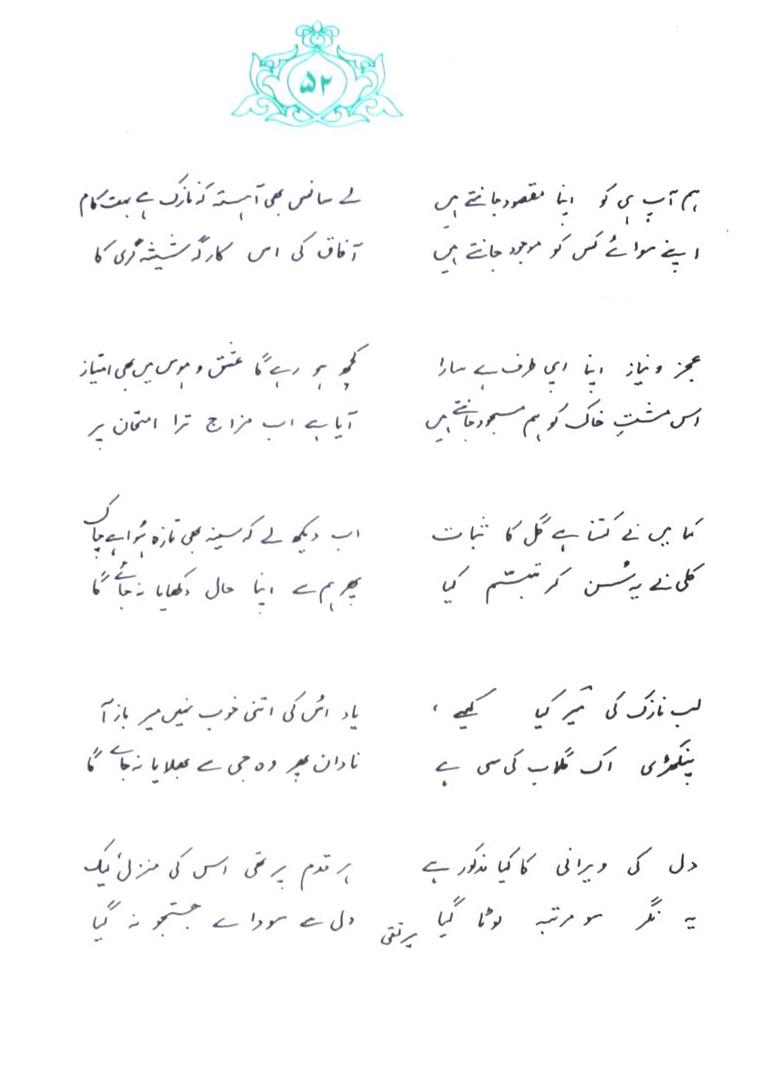 ۵۲
ہم آپ ہی کو اپنا مقصود جانتے ہیں
اپنے سوائے کس کو موجود جانتے ہیں
لے سانس بھی آہستہ کہ نازک ہے بہت کام
آفاق کی اس کارگہ شیشہ گری کا
عجز و نیاز اپنا اپنی طرف ہے سارا
اس مشتِ خاک کو ہم مسجود جانتے ہیں
کچھ ہو رہے گا عشق و ہوس میں بھی امتیاز
آیا ہے اب مزاج ترا امتحان پر
کہا میں نے کتنا ہے گُل کا ثبات
کلی نے یہ سُن کر تبسّم کیا
اب دیکھ لے کہ سینہ بھی تازہ ہُوا ہے چاک
پھر ہم سے اپنا حال دکھایا نہ جائے گا
لب نازک کی میر کیا کہیے ،
پنکھڑی اک گلاب کی سی ہے
یاد اُس کی اتنی خوب نہیں میر باز آ
نادان پھر وہ جی سے بھلایا نہ جائے گا
دل کی ویرانی کا کیا مذکور ہے
یہ نگر سو مرتبہ لوٹا گیا
ہر قدم پر تھی اس کی منزل لیک
دل سے سوداے جستجو نہ گیا
میر تقی